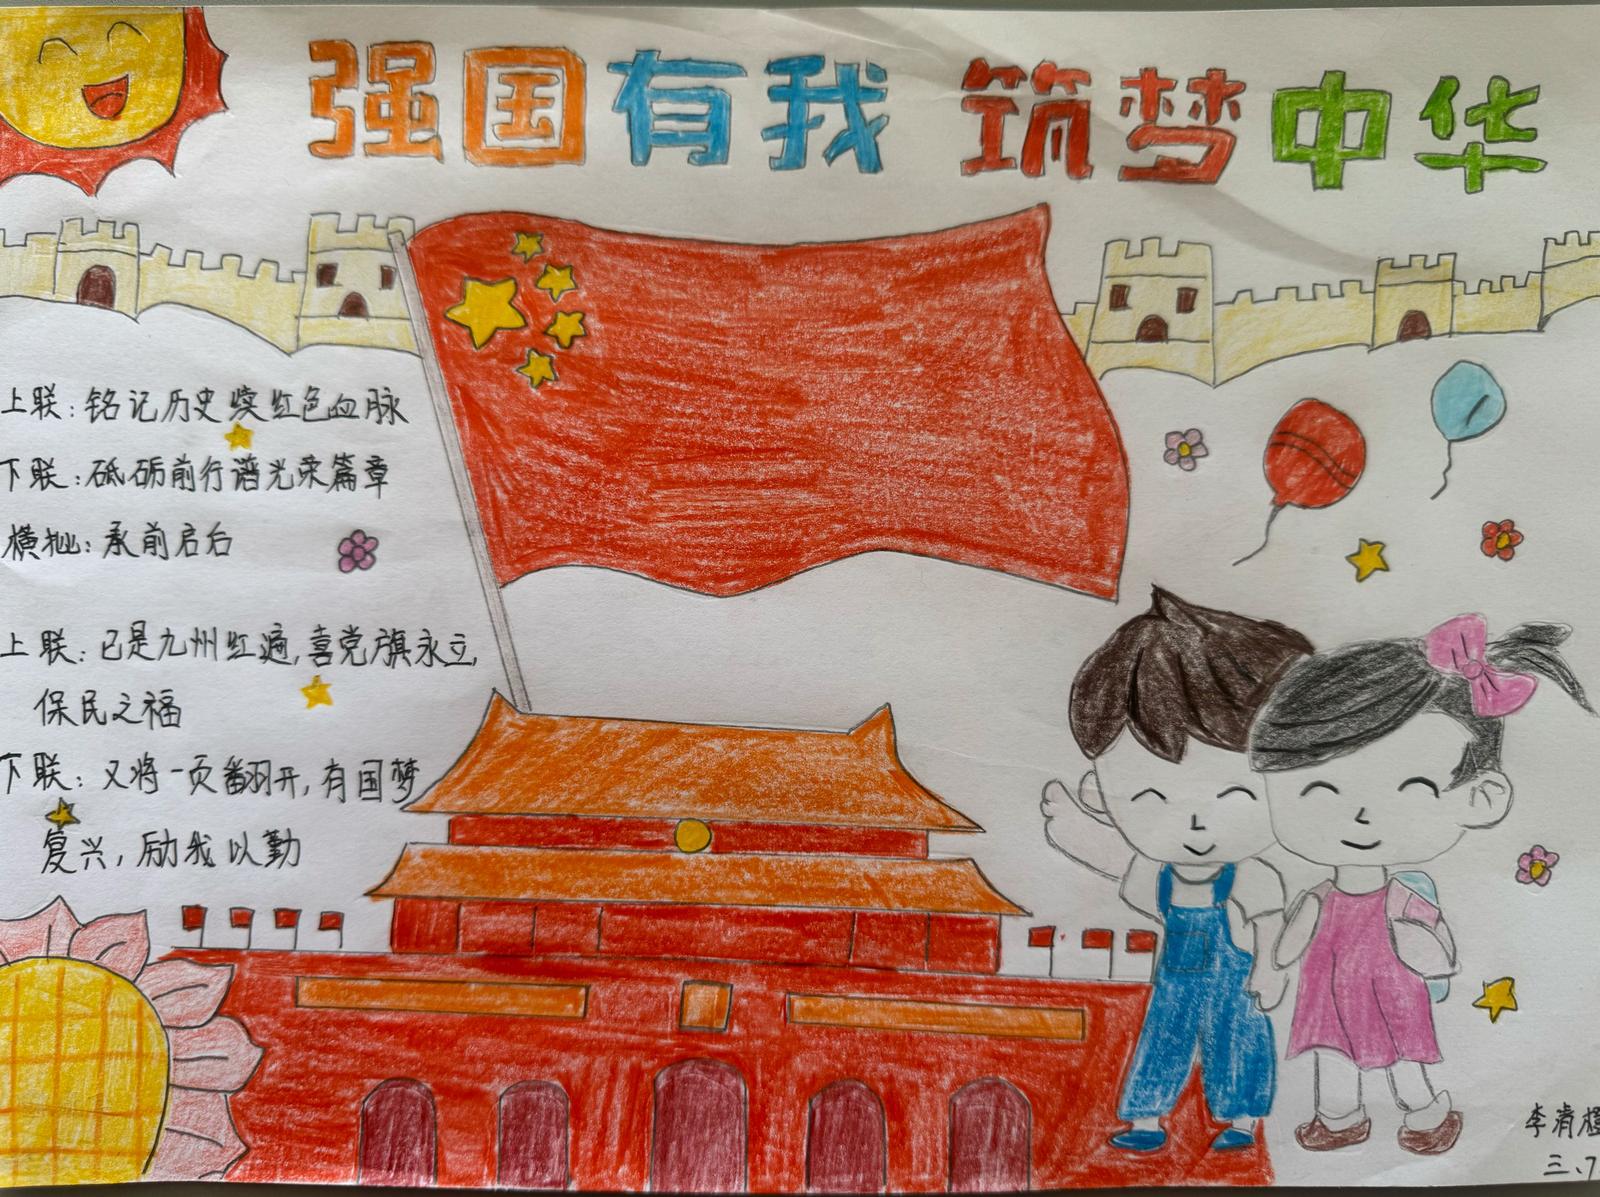 强国有我 筑梦中华
上联:铭记历史赓红色血脉
下联:砥砺前行谱光荣篇章
横批:承前启后
上联:已是九州红遍,喜党旗永立,
保民之福
下联:又将一页翻开,有国梦
复兴,励我以勤
李清
三、7